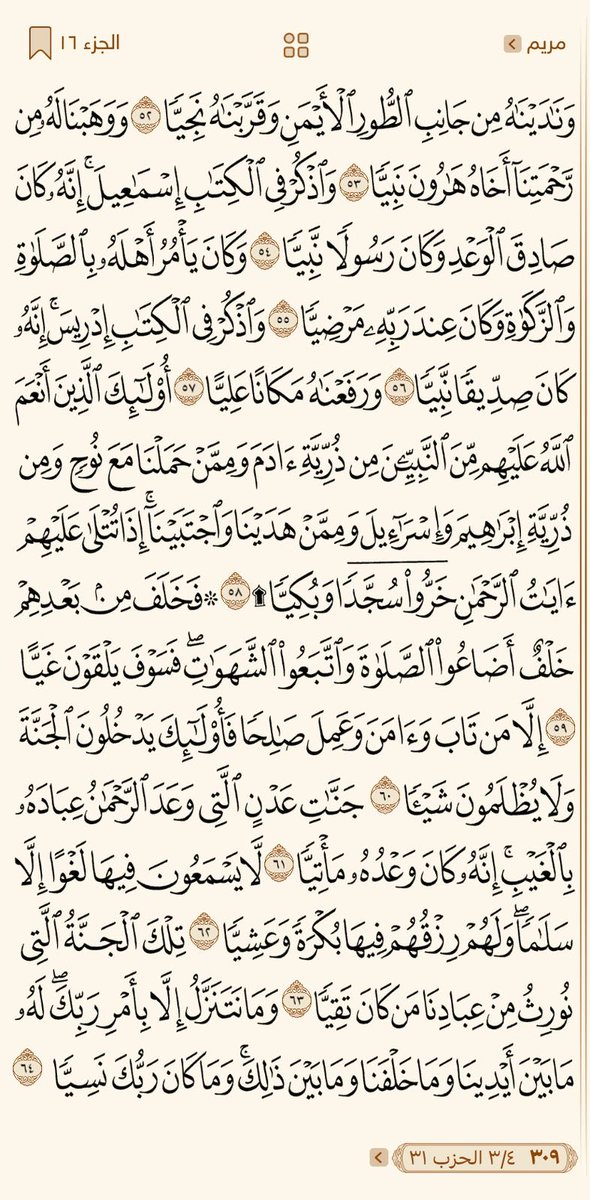 مريم
الجزء ١٦
وَنَٰدَيۡنَٰهُ مِن جَانِبِ ٱلطُّورِ ٱلۡأَيۡمَنِ وَقَرَّبۡنَٰهُ نَجِيّٗا ٥٢ وَوَهَبۡنَا لَهُۥ مِن
رَّحۡمَتِنَآ أَخَاهُ هَٰرُونَ نَبِيّٗا ٥٣ وَٱذۡكُرۡ فِي ٱلۡكِتَٰبِ إِسۡمَٰعِيلَۚ إِنَّهُۥ كَانَ
صَادِقَ ٱلۡوَعۡدِ وَكَانَ رَسُولٗا نَّبِيّٗا ٥٤ وَكَانَ يَأۡمُرُ أَهۡلَهُۥ بِٱلصَّلَوٰةِ
وَٱلزَّكَوٰةِ وَكَانَ عِندَ رَبِّهِۦ مَرۡضِيّٗا ٥٥ وَٱذۡكُرۡ فِي ٱلۡكِتَٰبِ إِدۡرِيسَۚ إِنَّهُۥ
كَانَ صِدِّيقٗا نَّبِيّٗا ٥٦ وَرَفَعۡنَٰهُ مَكَانًا عَلِيًّا ٥٧ أُوْلَٰٓئِكَ ٱلَّذِينَ أَنۡعَمَ
ٱللَّهُ عَلَيۡهِم مِّنَ ٱلنَّبِيِّـۧنَ مِن ذُرِّيَّةِ ءَادَمَ وَمِمَّنۡ حَمَلۡنَا مَعَ نُوحٖ وَمِن
ذُرِّيَّةِ إِبۡرَٰهِيمَ وَإِسۡرَٰٓءِيلَ وَمِمَّنۡ هَدَيۡنَا وَٱجۡتَبَيۡنَآۚ إِذَا تُتۡلَىٰ عَلَيۡهِمۡ
ءَايَٰتُ ٱلرَّحۡمَٰنِ خَرُّواْۤ سُجَّدٗاۤ وَبُكِيّٗا۩ ٥٨ ۞ فَخَلَفَ مِنۢ بَعۡدِهِمۡ
خَلۡفٌ أَضَاعُواْ ٱلصَّلَوٰةَ وَٱتَّبَعُواْ ٱلشَّهَوَٰتِۖ فَسَوۡفَ يَلۡقَوۡنَ غَيًّا
٥٩ إِلَّا مَن تَابَ وَءَامَنَ وَعَمِلَ صَٰلِحٗا فَأُوْلَٰٓئِكَ يَدۡخُلُونَ ٱلۡجَنَّةَ
وَلَا يُظۡلَمُونَ شَيۡـٔٗا ٦٠ جَنَّٰتِ عَدۡنٍ ٱلَّتِي وَعَدَ ٱلرَّحۡمَٰنُ عِبَادَهُۥ
بِٱلۡغَيۡبِۚ إِنَّهُۥ كَانَ وَعۡدُهُۥ مَأۡتِيّٗا ٦١ لَّا يَسۡمَعُونَ فِيهَا لَغۡوًا إِلَّا
سَلَٰمٗاۖ وَلَهُمۡ رِزۡقُهُمۡ فِيهَا بُكۡرَةٗ وَعَشِيّٗا ٦٢ تِلۡكَ ٱلۡجَنَّةُ ٱلَّتِي
نُورِثُ مِنۡ عِبَادِنَا مَن كَانَ تَقِيّٗا ٦٣ وَمَا نَتَنَزَّلُ إِلَّا بِأَمۡرِ رَبِّكَۖ لَهُۥ
مَا بَيۡنَ أَيۡدِينَا وَمَا خَلۡفَنَا وَمَا بَيۡنَ ذَٰلِكَۚ وَمَا كَانَ رَبُّكَ نَسِيّٗا ٦٤
٣٠٩ ٣/٤ الحزب ٣١